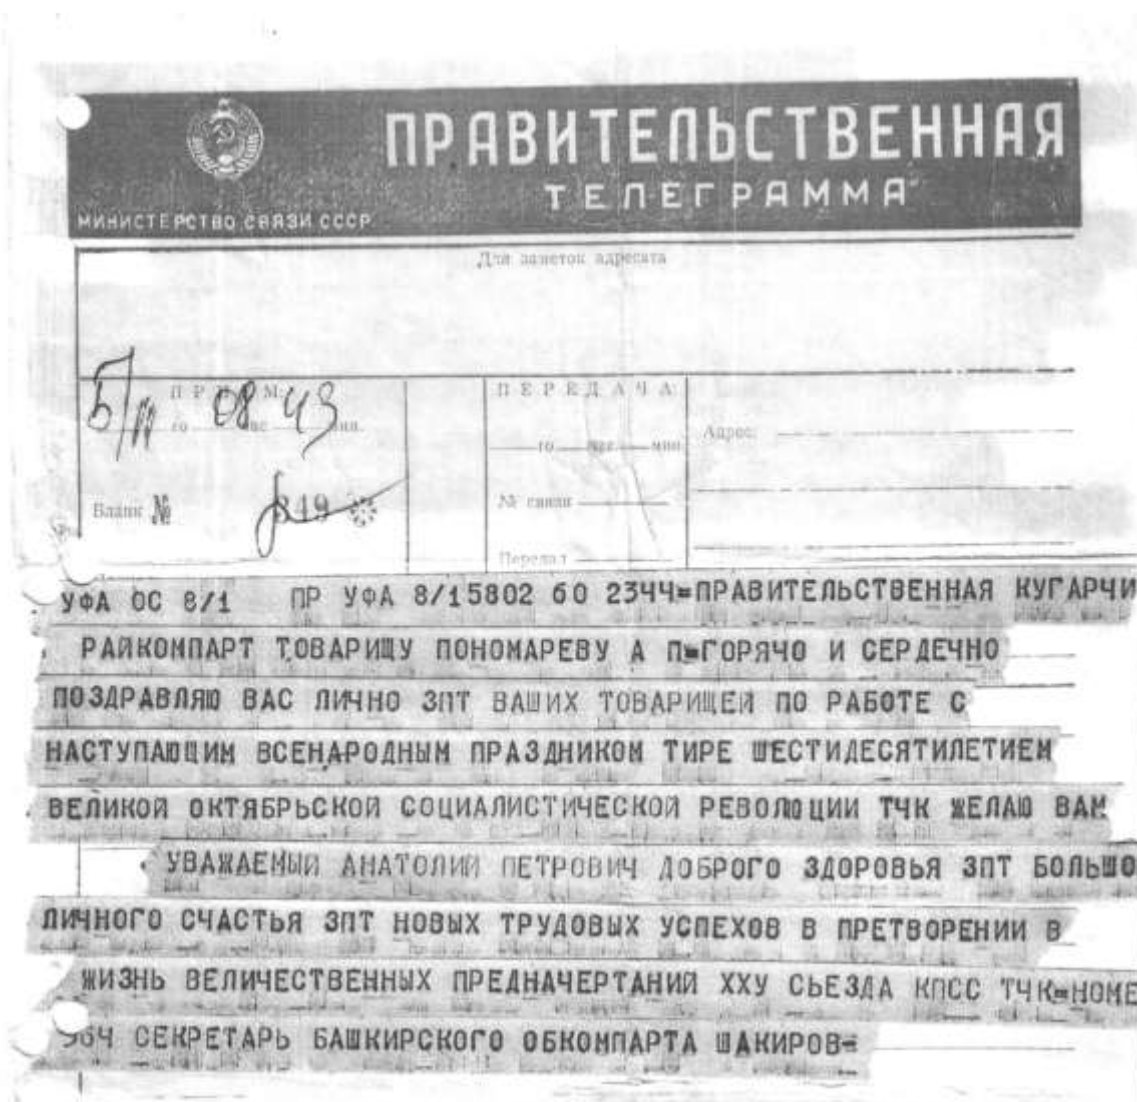 ПРАВИТЕЛЬСТВЕННАЯ
ТЕЛЕГРАММА
МИНИСТЕРСТВО СВЯЗИ СССР
Для заметок адресата
ПРИЕМ:
го час мин
08 43
Бланк № 349
ПЕРЕДАЧА:
го час мин
№ связи
Передал
Адрес:
УФА ОС 8/1 ПР УФА 8/15802 60 2344=ПРАВИТЕЛЬСТВЕННАЯ КУГАРЧИ
РАЙКОМПАРТ ТОВАРИЩУ ПОНОМАРЕВУ А П=ГОРЯЧО И СЕРДЕЧНО
ПОЗДРАВЛЯЮ ВАС ЛИЧНО ЗПТ ВАШИХ ТОВАРИЩЕЙ ПО РАБОТЕ С
НАСТУПАЮЩИМ ВСЕНАРОДНЫМ ПРАЗДНИКОМ ТИРЕ ШЕСТИДЕСЯТИЛЕТИЕМ
ВЕЛИКОЙ ОКТЯБРЬСКОЙ СОЦИАЛИСТИЧЕСКОЙ РЕВОЛЮЦИИ ТЧК ЖЕЛАЮ ВАМ
УВАЖАЕМЫЙ АНАТОЛИЙ ПЕТРОВИЧ ДОБРОГО ЗДОРОВЬЯ ЗПТ БОЛЬШО
ЛИЧНОГО СЧАСТЬЯ ЗПТ НОВЫХ ТРУДОВЫХ УСПЕХОВ В ПРЕТВОРЕНИИ В
ЖИЗНЬ ВЕЛИЧЕСТВЕННЫХ ПРЕДНАЧЕРТАНИЙ ХХУ СЬЕЗДА КПСС ТЧК=НОМЕ
964 СЕКРЕТАРЬ БАШКИРСКОГО ОБКОМПАРТА ШАКИРОВ=